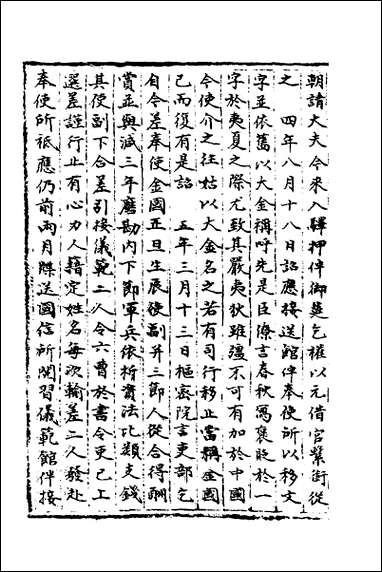 朝請大夫今來入驛押伴御筵乞權以元借官業銜從
之　四年八月十八日詔應接送館伴奉使所以移文
字並依舊以大金稱呼先是臣僚言春秋寓褒貶於一
字於夷夏之際尤致其嚴夷狄雖彊不可有加於中國
今使介之往姑以大金名之若有司行移止當稱金國
已而復有是詔　五年三月十三日樞密院言吏部乞
自今差奉使金國正旦生辰使副并三節人從合得酬
賞並與減三年磨勘內下節軍兵依析資法比類支錢
其使副下合差引接儀範二人令六曹於書令史已上
選差謹行止有心力人籍定姓名每次輪差二人發赴
奉使所祗應仍前兩月牒送國信所閱習儀範館伴接